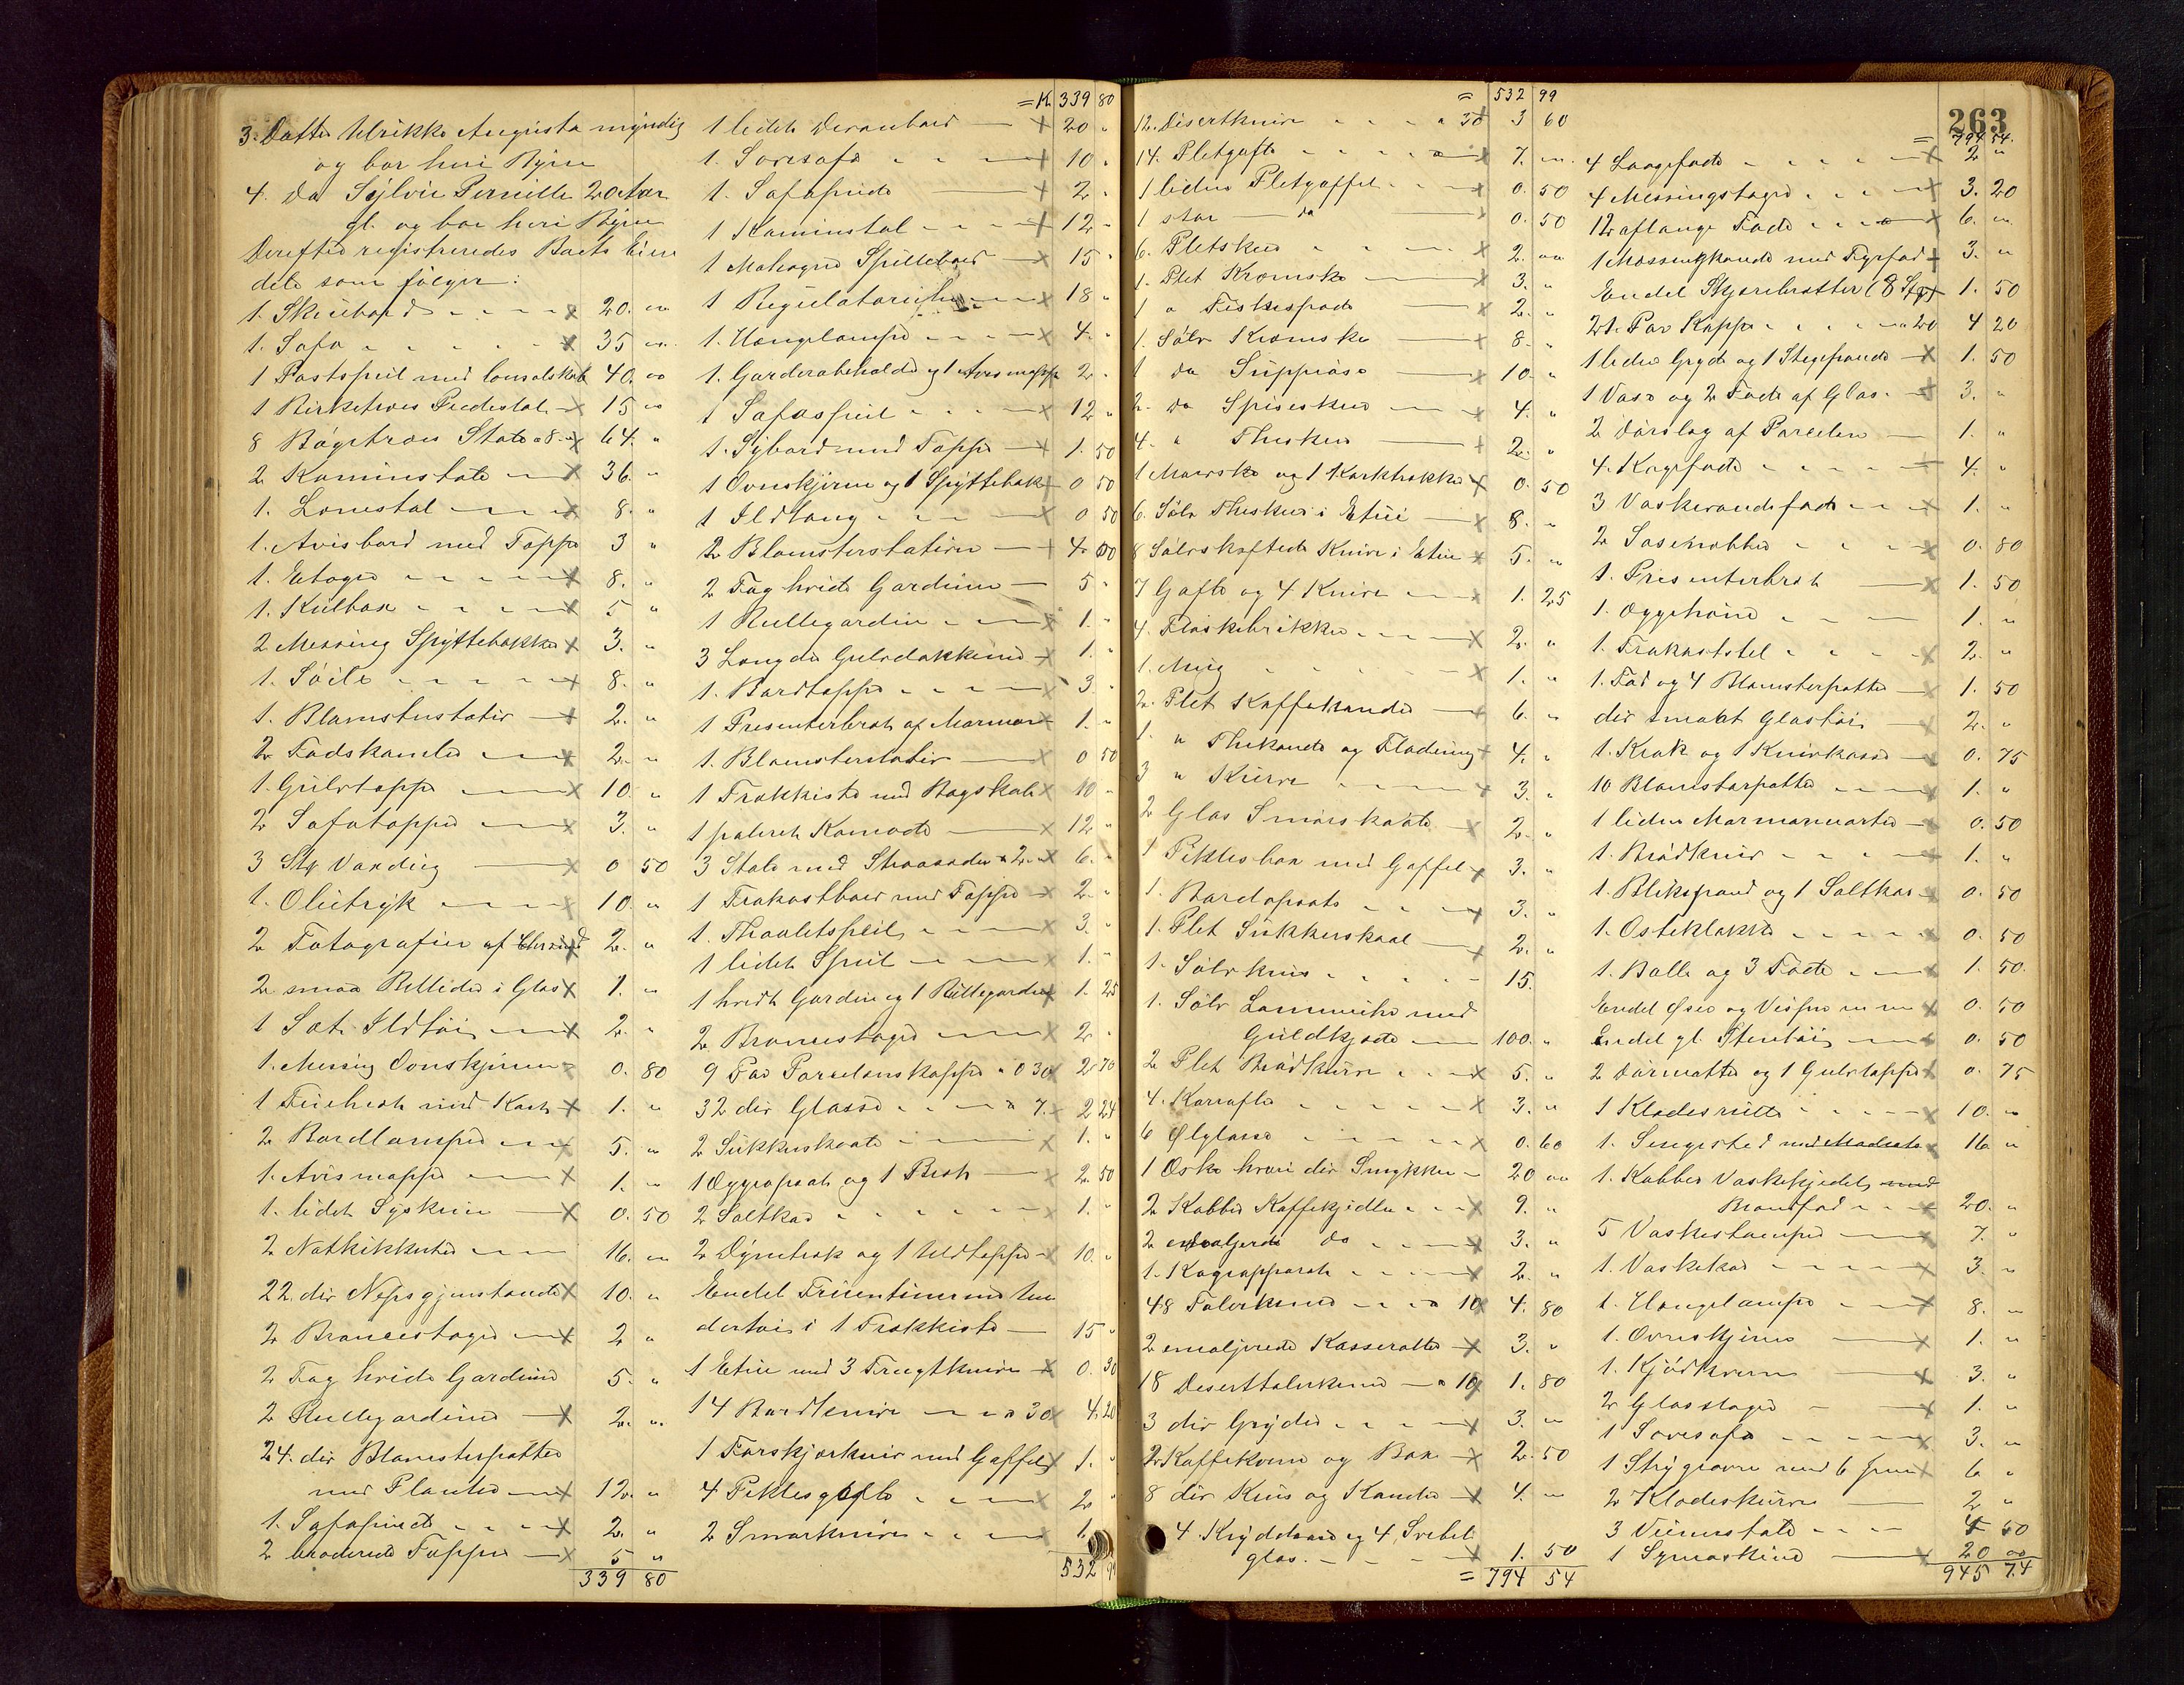 3. Datter Ulrikke Augusta myndig
og bor heri Byen
4. Do Sylvie Pernille 20 Aar
gl. og bor heri Byen
Derefter registreredes Boets Eien
dele som følger:
1. Skrivbord X 20. "
1. Sofa X 35 "
1 Postspeil med Consolskab 40. "
1 Birketræes Piedestal X 15 "
8 Bøgetræes Stole a 8. " X 64. "
2 Kaminstole X 36. "
1. Lænestol X 8. "
1. Avisbord med Tæppe 3 "
1. Etagere X 8. "
1. Kulbox X 5 "
2 Messing Spyttebakker X 3. "
1. Søile X 8. "
1. Blomsterstativ X 2. "
2 Fodskamler X 2. "
1. Gulvtæppe X 10. "
2 Sofatæpper X 3. "
3 Stkr Vandling X 0 50
1. Olietryk X 10. "
2 Fotografier af X 2. "
2 smaa Billeder i Glas X 1. "
1 Sæt Ildtøi X 2. "
1. Messing Ovnskjerm 0. 80
1 med X 1. "
2 Bordlamper X 5. "
1. Avismappe X 1. "
1. lidet Syskrin X 0. 50
2 Natkikkerter 16. "
22 div Nipsgjenstande X 10. "
2 Broncestager X 2 "
2 Fag hvide Gardiner 5. "
2 Rullegardiner X 2. "
24. div Blomsterpotter
med Planter X 12. "
1. Sofapude X 2. "
2 broderede Tæpper X 5 "
339 80
= K 339 80
1 lidet X 20 "
1. Sovesofa X 10. "
1. Sofapude X 2 "
1 Kaminstol X 12 "
1 Mahogni Spillebord X 15 "
1 Regulatoruhr X 18 "
1. Hængelampe X 4. "
1. Garderobeholder og 1 Avismappe 2 "
1 Sofaspeil X 12 "
1. Sybord med Tæppe X 1. 50
1 Ovnskjerm og 1 Spyttebak X 0 50
1 Ildtang X 0 50
2 Blomsterstativer X 4. 00
2 Fag hvide Gardiner 5 "
1 Rullegardin X 1. "
3 Længder Gulvdækkener X 1. "
1. Bordtæppe X 3. "
1 Presenterbret af Marmor X 1. "
1. Blomsterstativ X 0 50
1 Trækkiste med Bogskab X 10 "
1 poleret Komode X 12 "
3 Stole med Straasæder a 2. " X 6. "
1 Frokostbord med Tæppe X 2. "
1. Thoiletspeil X 3. "
1 lidet Speil X 1. "
1 hvidt Gardin og 1 Rullegardin X 1. 25
2 Broncestager X 2. "
9 Par Porcelænskopper a 0 30 X 2 70
32 div Glasse a 7. X 2 24
2 Sukkerskaale X 1. "
1 Oggeopsat og 1 Bret X 2. 50
2 Saltkar X 1. "
2 Dynetræk og 1 Uldtæppe X 10. "
Endel Fruentimmer Un
dertøi i 1 Trækkiste 15 "
1 Etui med 3 Frugtknive X 0. 30
14 Bordknive a 30 X 4. 20
1 Forskjærkniv med Gaffel X 1. "
4 Piklesgafle X 2 "
2 Smørknive X 1.
532 99
= 532 99
12. Desertknive a 30 3 60
14. Pletgafle X 7. "
1 liden Pletgaffel X 0. 50
1 stor do 0. 50
6. Pletskeer X 2. "
1. Plet Kremske X 3. "
1 " Fiskespade X 2. "
1. Sølv Kremske X 8. "
1 do Suppeøse X 10. "
2. do Spiseskeer X 4. "
4. " Theskeer X 2. "
1 Marvske og 1 Korktrækker X 0. 50
6. Sølv Theskeer i Etui X 8. "
8 Sølvskaftede Knive i Etui X 5. "
7 Gafle og 4 Knive X 1. 25
4. Flaskebrikker X 2. "
1. Mug X 1. "
2. Plet Kaffekander X 6. "
1. " Thekande og Flødemug X 4. "
3 " Kurve X 3. "
2 Glas Smørskaale X 2. "
1 Piklesbox med Gaffel X 3. "
1. Bordopsats X 3. "
1. Plet Sukkerskaal X 2. "
1. Sølvkrus 15.
1. Sølv Lommeuhr med
Guldkjæde 100. "
2 Plet Brødkurve X 5. "
4. Karafler X 3. "
6 Ølglasse X 0. 60
1 Æske hvori div Smykker 20 "
2 Kobber Kaffekjedler X 9. "
2 emaljerede do X 3. "
1. Kogeapparat X 2. "
48 Talerkener a 10 X 4. 80
2 emaljerede Kasseroller X 3. "
18 Deserttalerkener a 10 X 1. 80
3 div Gryder X 3. "
2 Kaffekverne og Box X 2. 50
8 div Krus og Kander X 4. "
4 Krydderi og 4 Svebel
glas. X 1. 50
= 794 54
263
= 794 54.
4 Laagefade X 2 "
4 Messingstager X 3. 20
12 aflange Fade X 6. "
1 Messingkande med Fyrfad X 3. "
Endel Skjærebretter (8 Stkr) X 1. 50
21. Par Kopper a 20 4 20
1 liden Gryde og 1 Stegepande X 1. 50
1 Vase og 2 Fade af Glas. X 3. "
2 Dørslag af Porcelen 1. "
4. Kagefade X 4. "
3 Vaskevandsfade X 1. "
2 Sausenebber X 0. 80
1. Presenterbret X 1. 50
1. Æggehøne 1. "
1. Frokoststel X 2. "
1. Fad og 4 Blomsterpotter X 1. 50
div smaat Glastøi X 2. "
1. Krak og 1 Knivkasse X 0. 75
10 Blomsterpotter X 1. "
1 liden Marmormorter X 0. 50
1. Brødkniv X 1. "
1. Blikspand og 1 Saltkar X 0. 50
1. Osteklokke X 0. 50
1. Balle og 3 Fade X 1. 50.
Endel Øser og Visper m m X 0. 50
Endel gl. Stentøi X 0. 50
2 Dørmatter og 1 Gulvtæppe X 0. 75
1 Klæderulle X 10. "
1. Sengested med Madrats X 16 "
1. Kobber Vaskekjedel, med
X 20. "
5 Vaskestamper X 7. "
1. Vaskekar X 3. "
1. Hængelampe X 8. "
1. Ovnskjerm X 1. "
1. Kjødkvern X 3. "
2 Glasstager X 1. "
1 Sovesofa X 3. "
1 Strygeovn med 6 Jern X 6 "
2 Klædeskurve 2 "
3 Vinnestole 4 50
1 Symaskine X 20 00
945 74